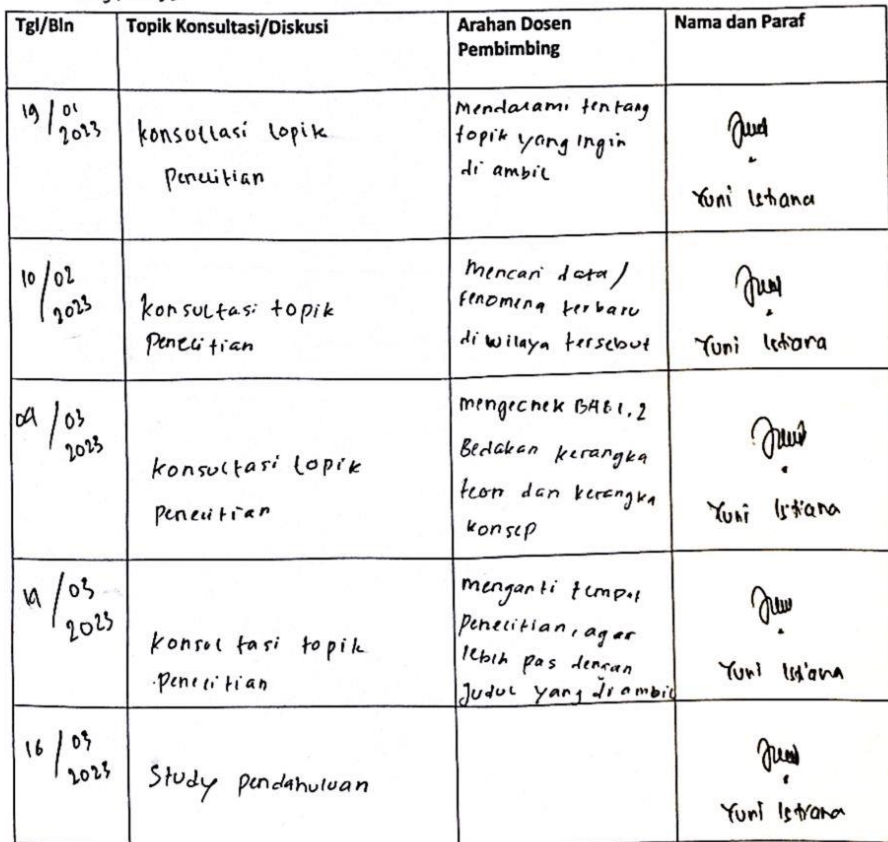 Tgl/Bln Topik Konsultasi/Diskusi Arahan Dosen Pembimbing Nama dan Paraf
19/01 2023
konsultasi topik
Penelitian
Mendalami tentang
topik yang ingin
di ambil
Yuni Istiana
10/02 2023
konsultasi topik
Penelitian
Mencari data/
fenomena terbaru
di wilaya tersebut
Yuni Istiana
09/03 2023
konsultasi topik
Penelitian
mengecnek BAB 1,2
Bedakan kerangka
teori dan kerangka
konsep
Yuni Istiana
/03 2023
konsultasi topik
Penelitian
menganti tempat
Penelitian, agar
lebih pas dengan
Judul yang di ambil
Yuni Istiana
16/03 2023
Study pendahuluan
Yuni Istiana